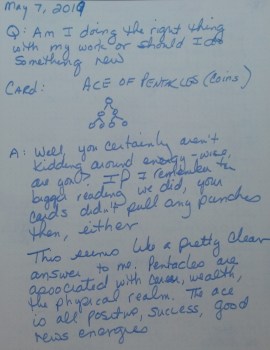 May 7, 2019
Q: Am I doing the right thing
with my work or should I do
something new
CARD: ACE OF PENTACLES (coins)
A: Well, you certainly aren't
kidding around energy-wise,
are you? If I remember the
bigger reading we did, your
cards didn't pull any punches
then, either
This seems like a pretty clear
answer to me. Pentacles are
associated with career, wealth,
the physical realm. The ace
is all positive, success, good
news energies